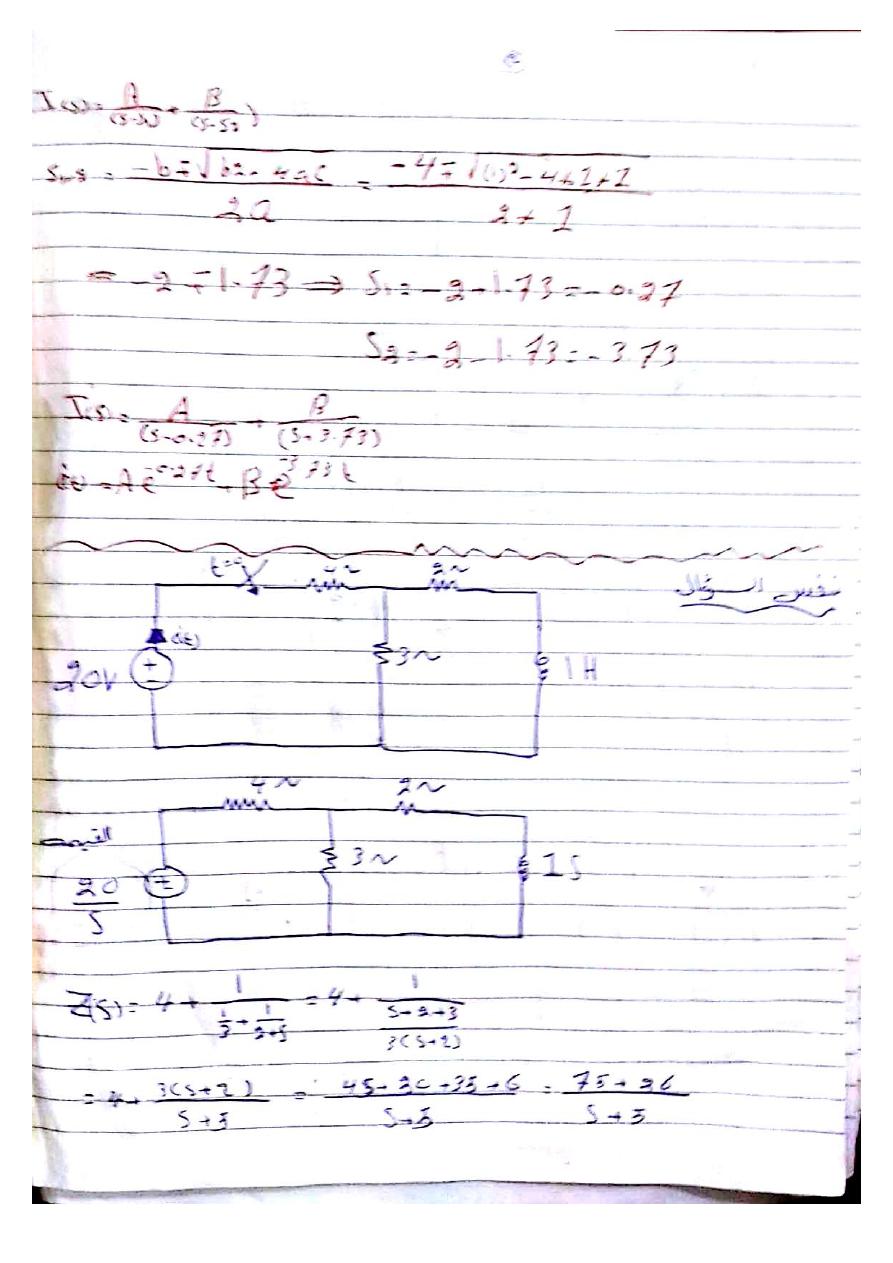 I(s) = A/(s-s1) + B/(s-s2)
S1,2 = (-b ∓ √(b2 - 4ac))/2a = (-4 ∓ √((4)² - 4*1*1))/(2*1)
= -2 ∓ 1.73 ⇒ S1 = -2+1.73 = -0.27
S2 = -2-1.73 = -3.73
I(s) = A/(s+0.27) + B/(s+3.73)
i(t) = A e^-0.27t + B e^-3.73t
نفس السؤال
t=0
2~
i(t)
20V
3~
1H
4~
2~
20/S
3~
1S
Z(s) = 4 + 1/(1/3 + 1/(2+s)) = 4 + 1/((s+2+3)/(3(s+2)))
= 4 + 3(s+2)/(s+5) = (4s+20+3s+6)/(s+5) = (7s+26)/(s+5)